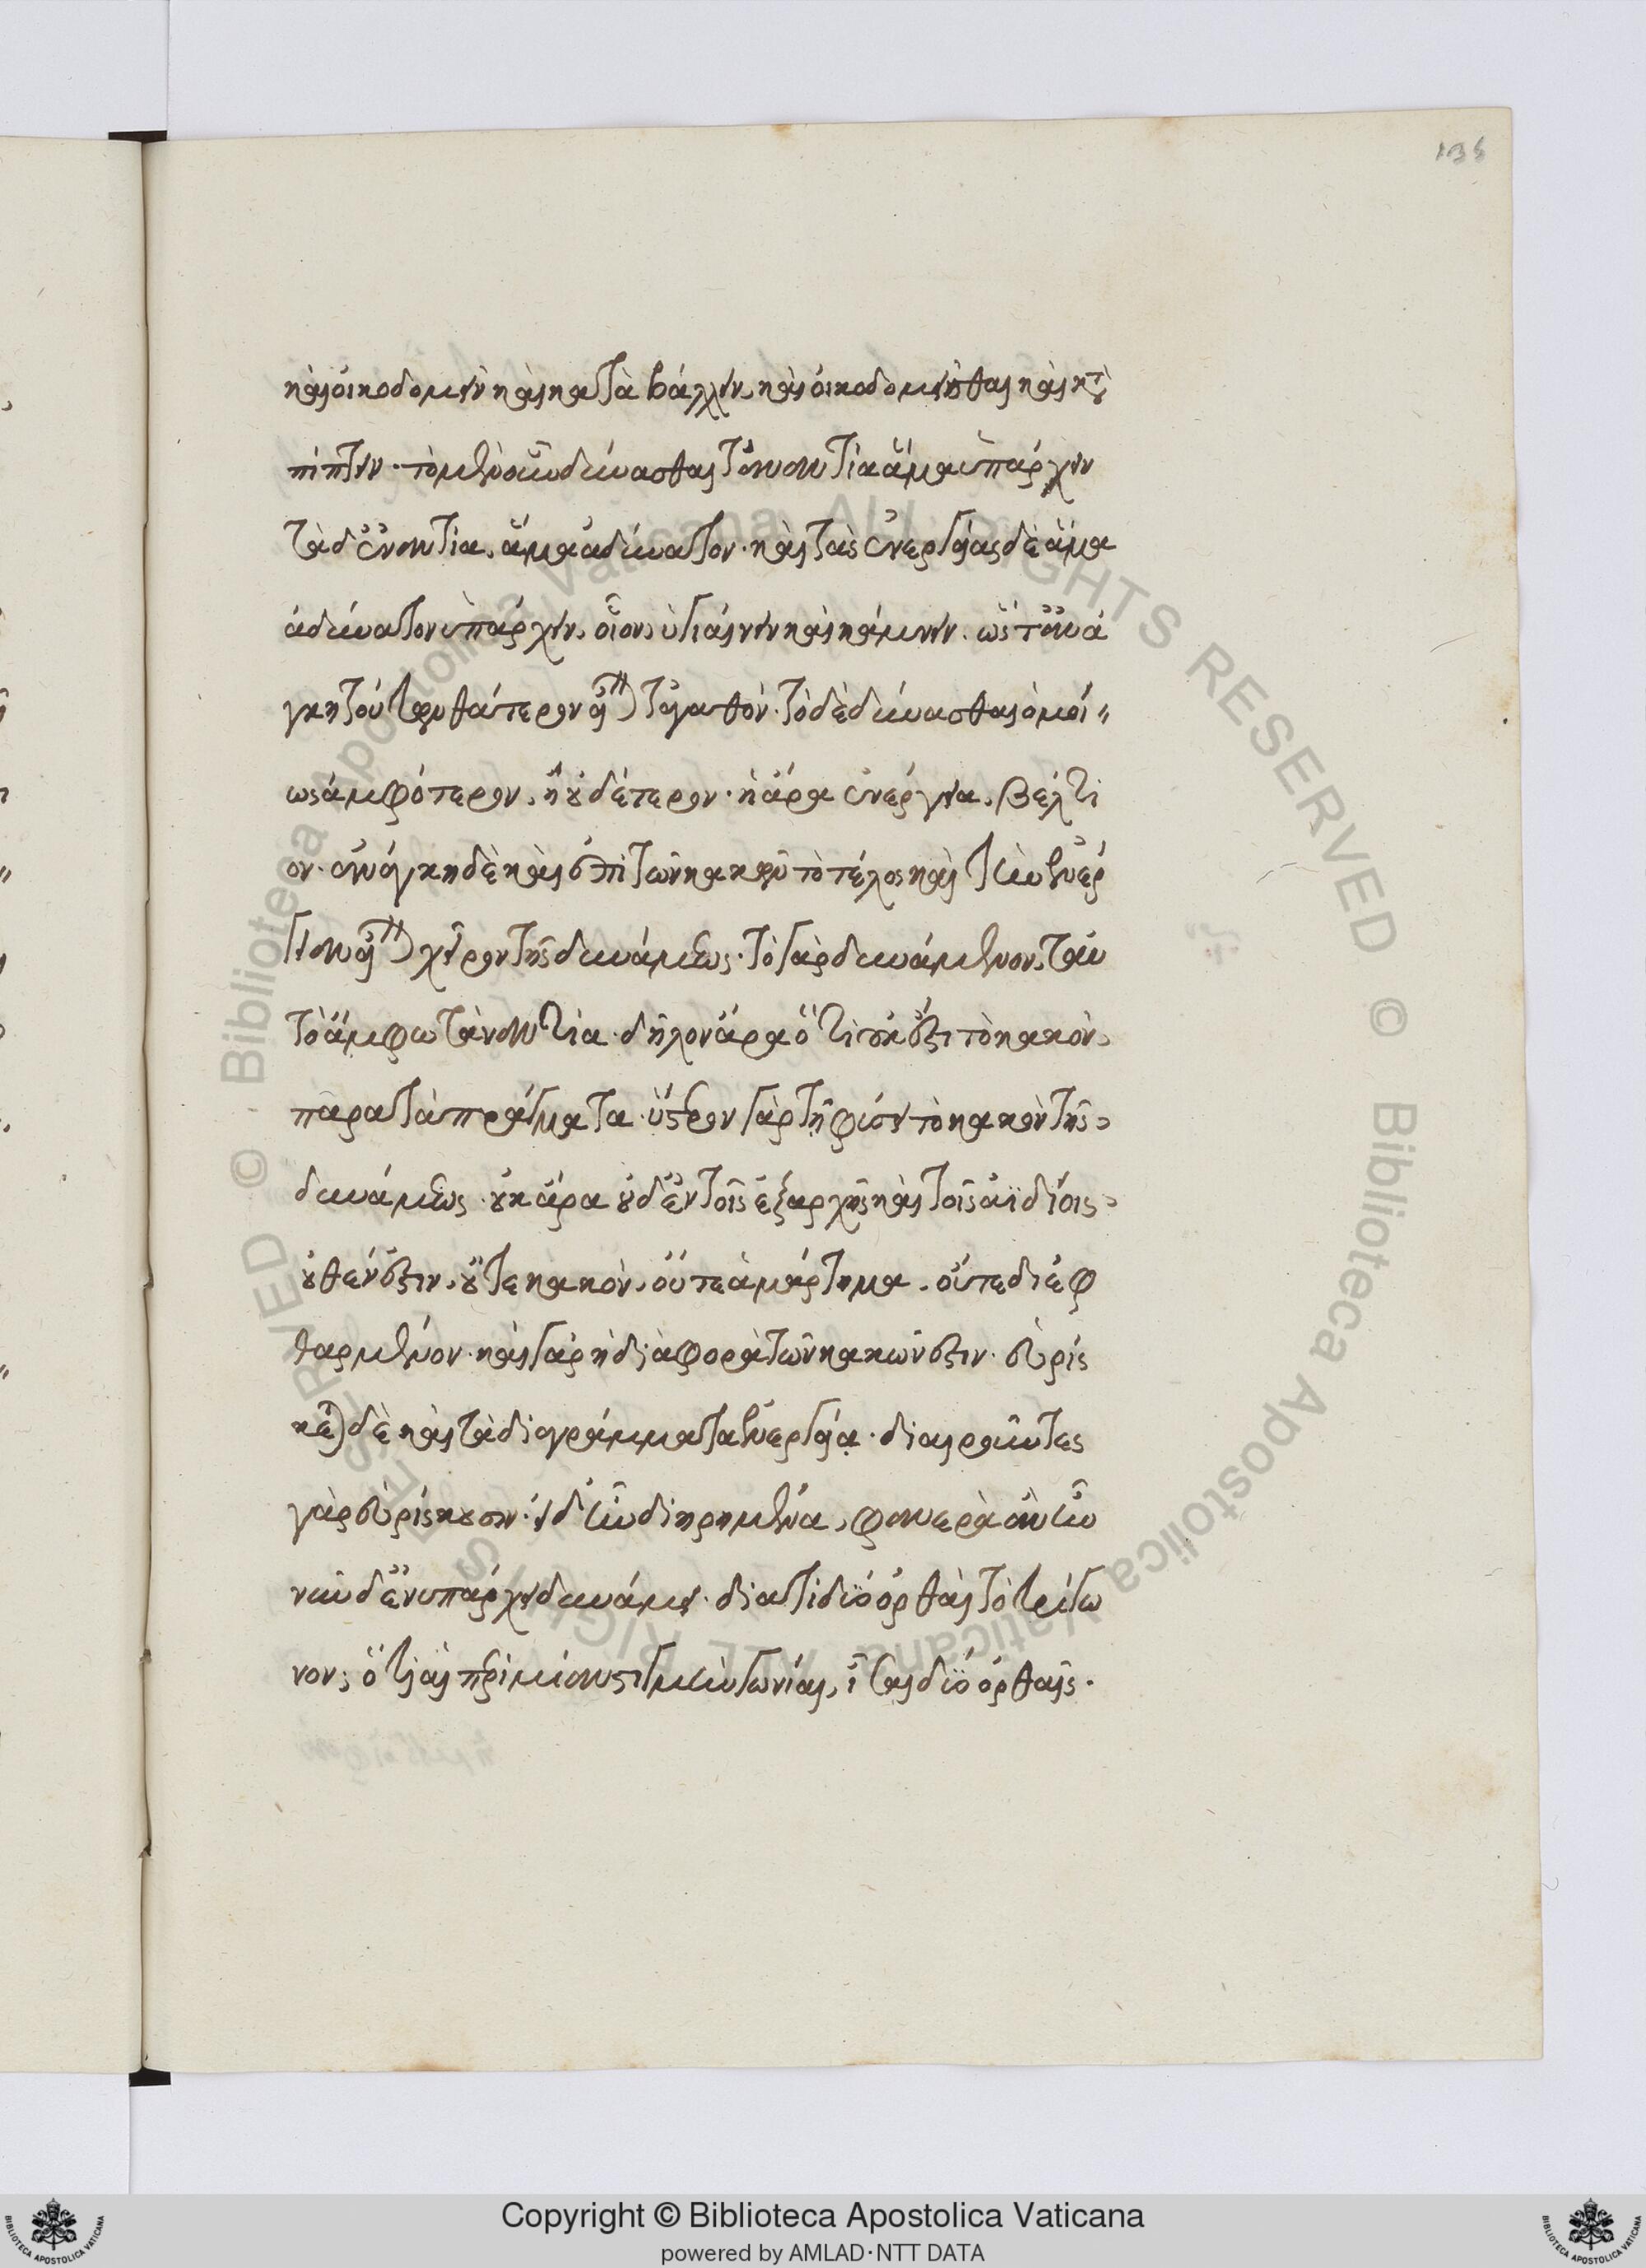 135
καὶ οἰκοδομεῖν καὶ καταβάλλειν, καὶ οἰκοδομεῖσθαι καὶ κατα
πίπτειν· τὸ μὲν οὖν δύνασθαι τἀναντία ἅμα ὑπάρχει
τὰ δ' ἐναντία, ἅμα ἀδύνατον· καὶ τὰς ἐνεργείας δὲ ἅμα
ἀδύνατον ὑπάρχειν, οἷον, ὑγιαίνειν καὶ κάμνειν. ὥστ' ἀνά
γκη τούτων θάτερον εἶναι τἀγαθόν· τὸ δὲ δύνασθαι ὁμοί
ως ἀμφότερον, ἢ οὐδέτερον· ἡ ἄρα ἐνέργεια, βελτί
ον· ἀνάγκη δὲ καὶ ἐπὶ τῶν κακῶν τὸ τέλος καὶ τὴν ἐνέρ
γειαν εἶναι χεῖρον τῆς δυνάμεως· τὸ γὰρ δυνάμενον, ταυ
τὸ ἄμφω τἀναντία· δῆλον ἄρα ὅτι οὐκ ἔστι τὸ κακὸν,
παρὰ τὰ πράγματα· ὕστερον γὰρ τῇ φύσει τὸ κακὸν τῆς
δυνάμεως· οὐκ ἄρα οὐδ' ἐν τοῖς ἐξ ἀρχῆς καὶ τοῖς ἀϊδίοις
οὐθέν ἔστιν, οὔτε κακὸν, οὔτε ἁμάρτημα, οὔτε διεφ
θαρμένον· καὶ γὰρ ἡ διαφορὰ τῶν κακῶν ἔστιν· εὑρίς
κεται δὲ καὶ τὰ διαγράμματα ἐνεργείᾳ· διαιροῦντες
γὰρ εὑρίσκουσιν· εἰ δ' ἦν διῃρημένα, φανερὰ ἂν ἦν
νῦν δ' ἐνυπάρχει δυνάμει· διατί δύο ὀρθαὶ τὸ τρίγω
νον; ὅτι αἱ περὶ μίαν στιγμὴν γωνίαι, ἴσαι δύο ὀρθαῖς·
Copyright © Biblioteca Apostolica Vaticana
powered by AMLAD·NTT DATA